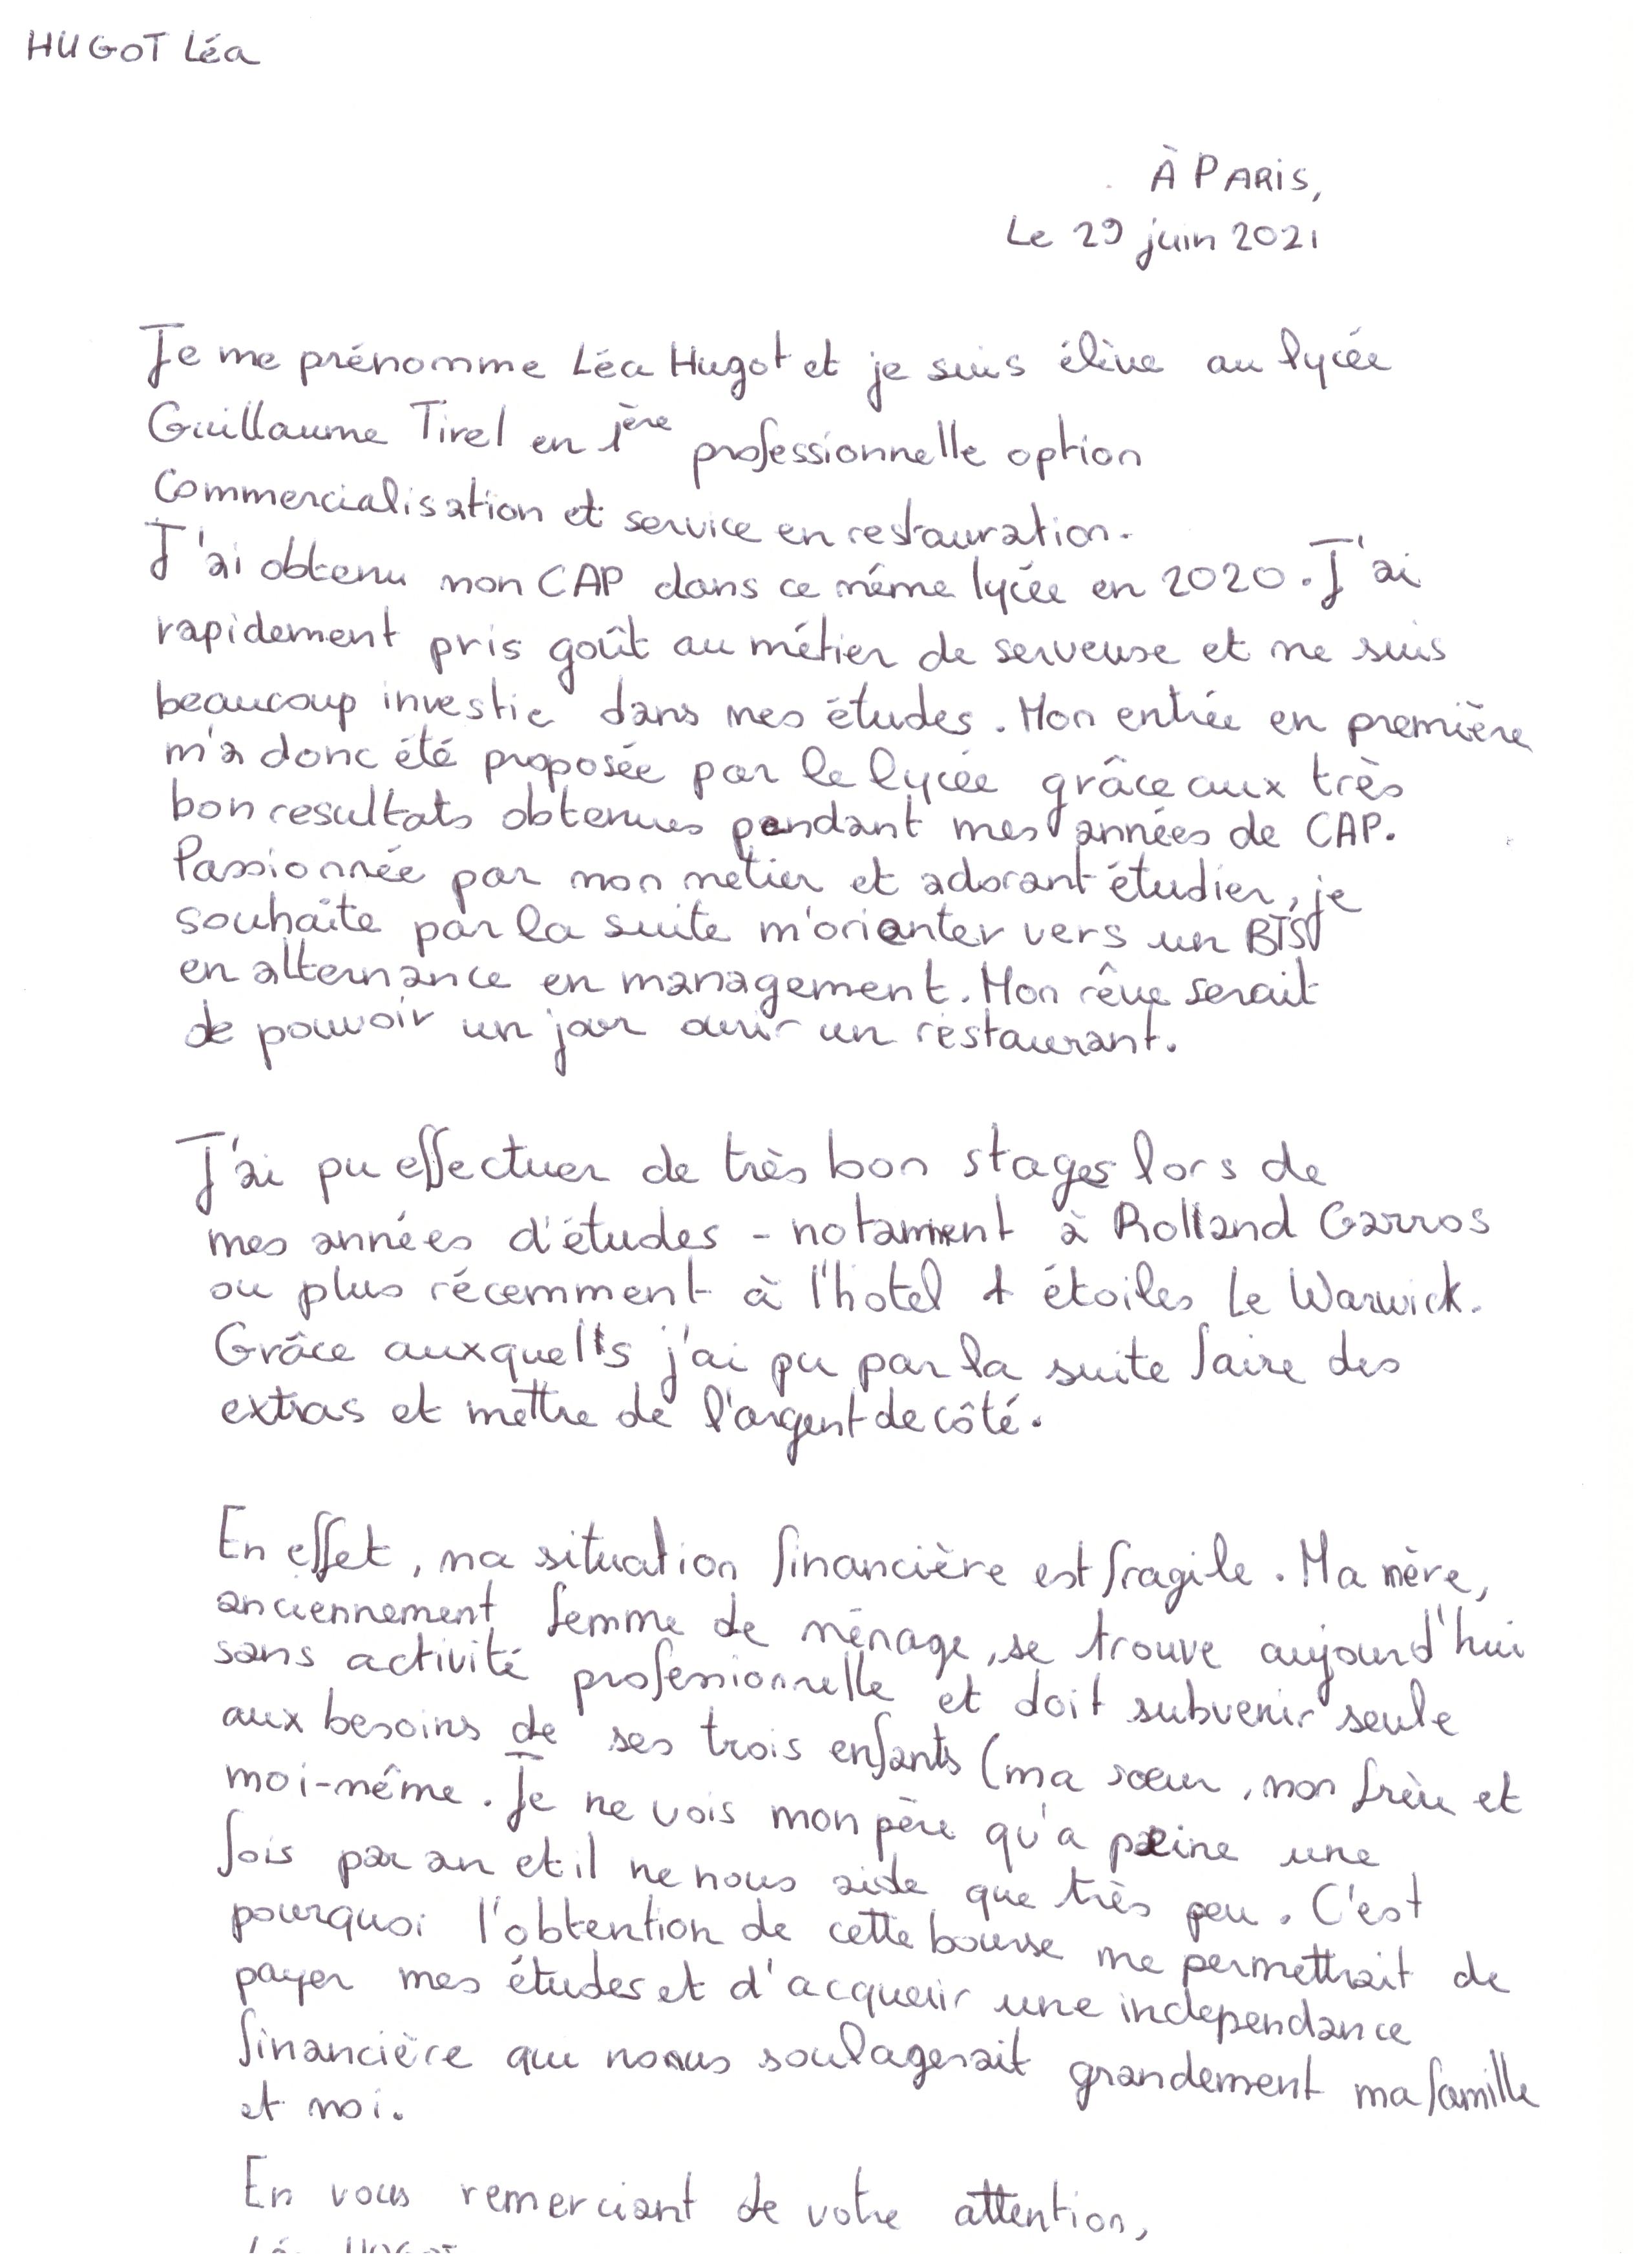 HUGOT Léa
À PARIS,
Le 29 juin 2021
Je me prénomme Léa Hugot et je suis élève au lycée
Guillaume Tirel en 1ère professionnelle option
Commercialisation et service en restauration.
J'ai obtenu mon CAP dans ce même lycée en 2020. J'ai
rapidement pris goût au métier de serveuse et me suis
beaucoup investie dans mes études. Mon entrée en première
m'a donc été proposée par le lycée grâce aux très
bon resultats obtenues pendant mes années de CAP.
Passionnée par mon métier et adorant étudier, je
souhaite par la suite m'orienter vers un BTS
en alternance en management. Mon rêve serait
de pouvoir un jour ouvrir un restaurant.
J'ai pu effectuer de très bon stages lors de
mes années d'études - notamment à Rolland Garros
ou plus récemment à l'hotel 4 étoiles Le Warwick.
Grâce auxquells j'ai pu par la suite faire des
extras et mettre de l'argent de côté.
En effet, ma situation financière est fragile. Ma mère,
anciennement femme de ménage, se trouve aujourd'hui
sans activité professionnelle et doit subvenir seule
aux besoins de ses trois enfants (ma sœur, mon frère et
moi-même. Je ne vois mon père qu'a peine une
fois par an et il ne nous aide que très peu. C'est
pourquoi l'obtention de cette bourse me permettrait de
payer mes études et d'acquerir une independance
financière qui nous soulagerait grandement ma famille
et moi.
En vous remerciant de votre attention,
Léa HUGOT